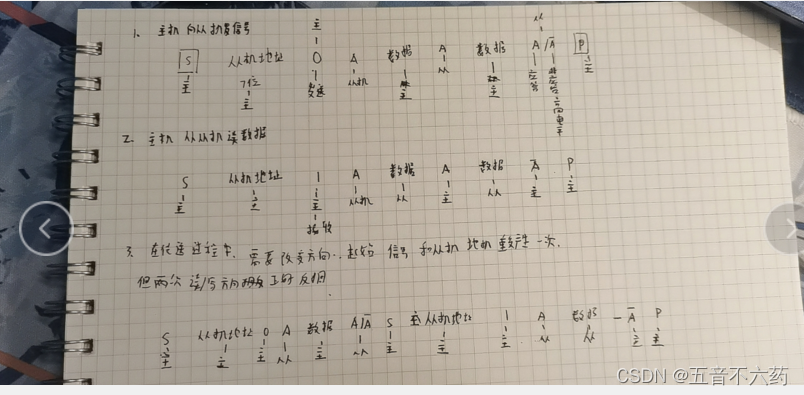 1. 主机向从机发信号
主 从
S 从机地址 0 A 数据 A 数据 A/A̅ P
主 7位 主 发送 从机 主 从 主 应答 非应答 高电平 主
2. 主机从从机读数据
S 从机地址 1 A 数据 A 数据 A̅ P
主 主 主 从机 从 主 从 主 主
接收
3. 在传送过程中，需要改变方向，起始信号和从机地址重产生一次，
但两次读/写方向正好反相
S 从机地址 0 A 数据 A/A̅ S 从机地址 1 A 数据 A̅ P
主 主 主 从 主 从 主 主 主 从 从 主 主
CSDN @五音不六药